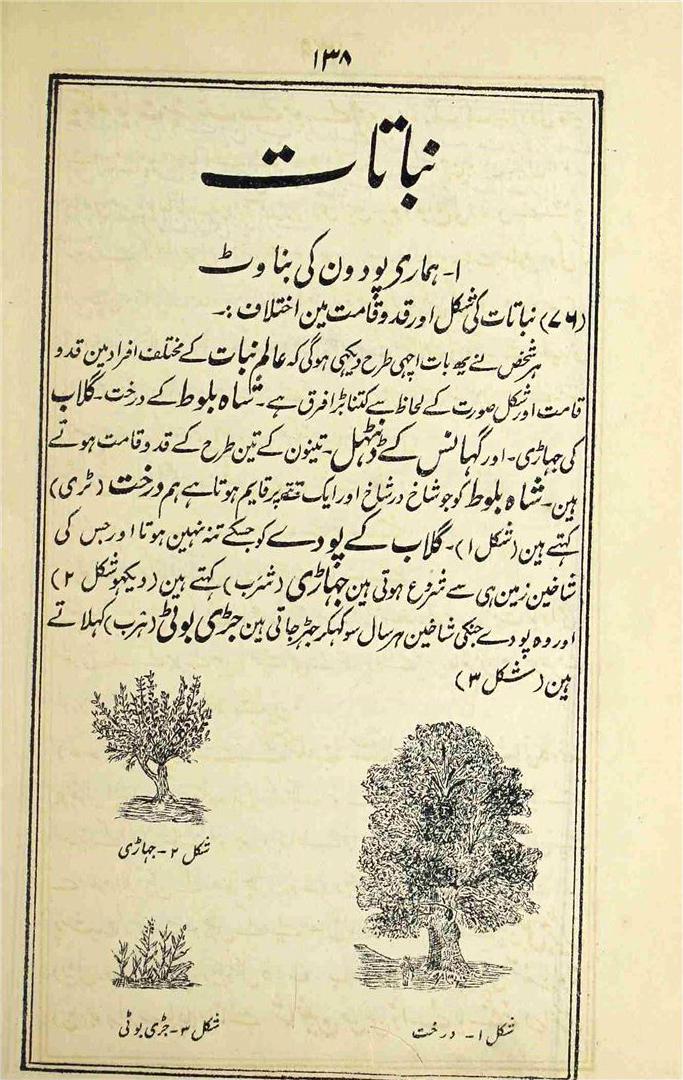 ۱۳۸
نباتات
۱- ہماری پودون کی بناوٹ
(۷۶) نباتات کی شکل اور قد و قامت مین اختلاف :۔
ہر شخص نے یہ بات اچہی طرح دیکہی ہوگی کہ عالم نبات کے مختلف افراد مین قد و
قامت اور شکل صورت کے لحاظ سے کتنا بڑا فرق ہے۔ شاہ بلوط کے درخت۔ گلاب
کی جہاڑی۔ اور گہانس کے ڈنٹہل۔ تینون کے تین طرح کے قد و قامت ہوتے
ہین۔ شاہ بلوط کو جو شاخ در شاخ اور ایک تنے پر قایم ہوتا ہے ہم درخت (ٹری)
کہتے ہین (شکل ۱)۔ گلاب کے پودے کو جسکے تنہ نہین ہوتا اور جس کی
شاخین زمین ہی سے شروع ہوتی ہین جہاڑی (شرب) کہتے ہین (دیکہو شکل ۲)
اور وہ پودے جنکی شاخین ہر سال سوکہکر جہڑ جاتی ہین جڑی بوٹی (ہرب) کہلاتے
ہین (شکل ۳)
شکل ۲- جہاڑی
شکل ۳- جڑی بوٹی
شکل ۱- درخت